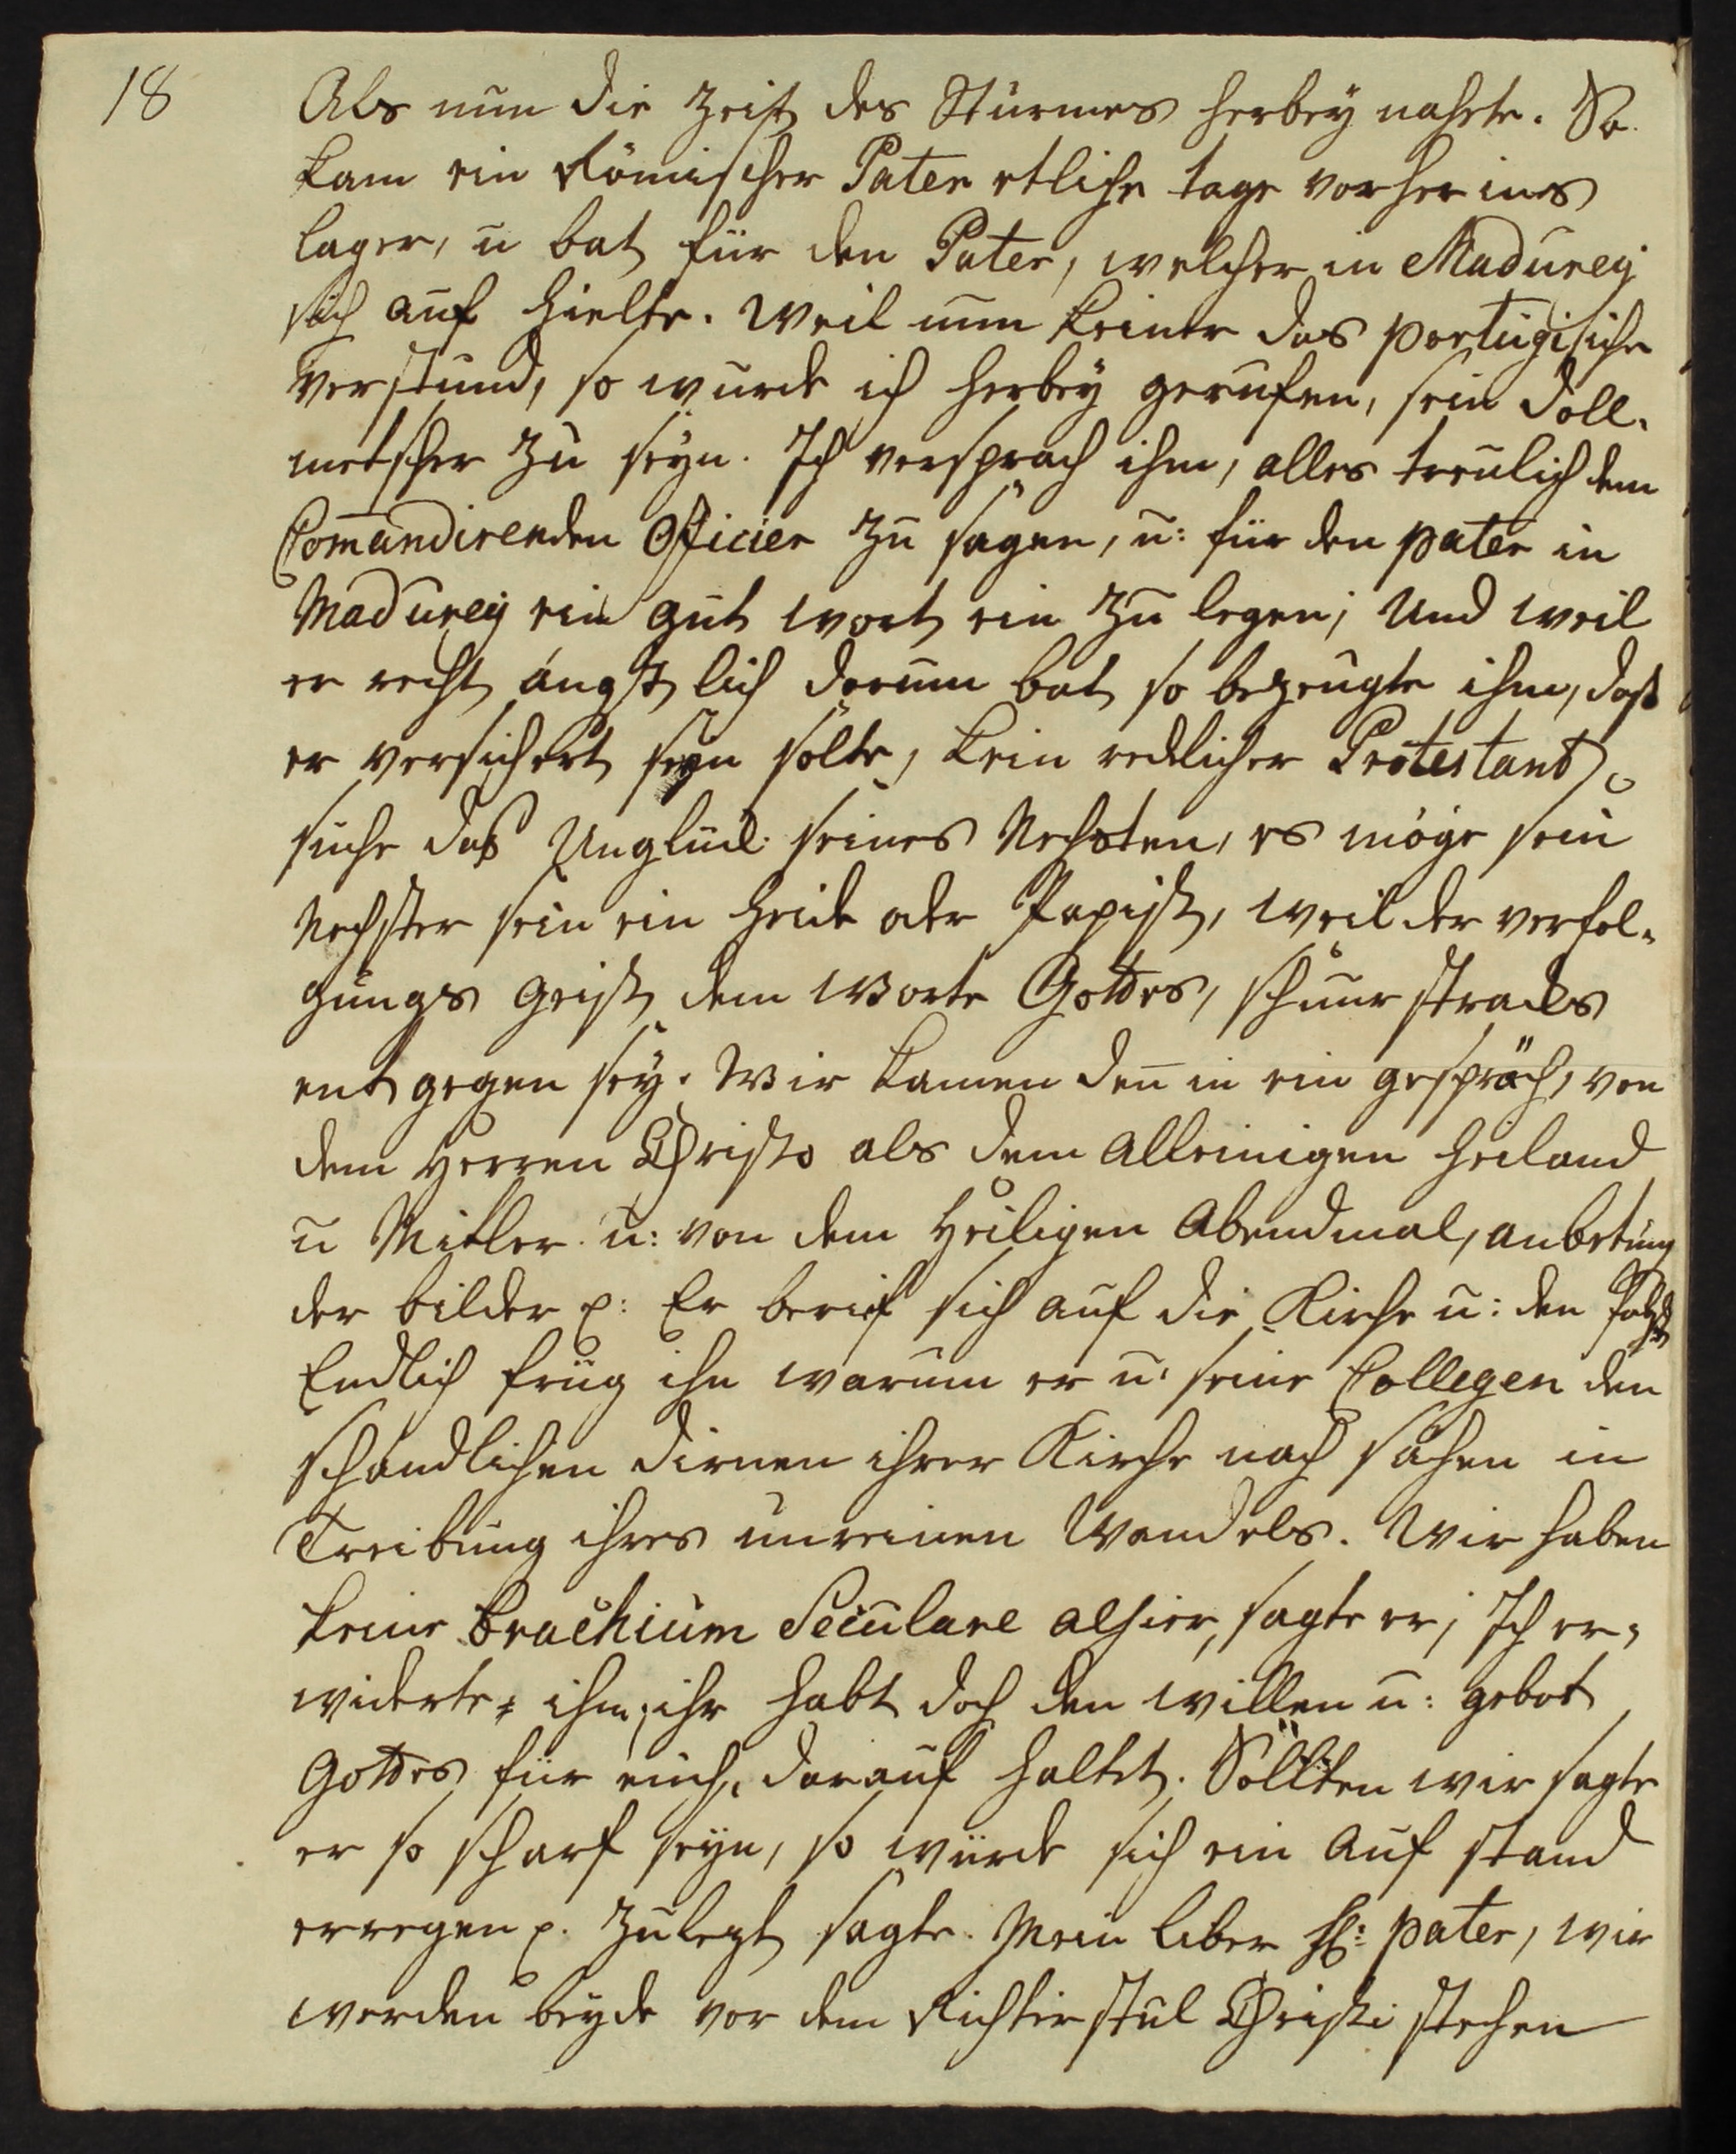 18
Als nun die Zeit des Sturmes herbey nahete. So
kam ein Römischer Pater etliche tage vorher ins
lager, u bat für den Pater, welcher in Madurey
sich auf hielte. Weil nun keiner das portugisische
verstund, so wurde ich herbey gerufen, sein Doll-
metscher zu seyn. Ich versprach ihm, alles treulich dem
Com̄andirenden Officier zu sagen, u: für den pater in
Madurey ein gut wort ein zu legen; Und weil
er recht ängstlich darum bat so bezeugte ihm, daß
er versichert seyn solte, kein redlicher Protestant
suche das Unglück seines Nechsten, es möge sein
Nechster sein ein Heide oder Papist, weil der verfol-
gungs Geist dem Worte Gottes, schnur stracks
ent gegen sey. Wir kamen den̄ in ein gespräch, von
dem Herren Christo als dem Alleinigen Heiland
u Mitler. u: von dem Heiligen Abendmal, anbetung
der bilder p: Er berief sich auf die Kirche u: den Pabst
Endlich frug ihn warum er u: seine Collegen den
schandlichen dirnen ihrer Kirche nach sähen in
Treibung ihres unreinen Wandels. Wir haben
keine Brachium Seculare alhier, sagte er; Ich er-
widerte ihm; ihr habt doch den willen u: gebot
Gottes für euch, darauf haltet. Söllten wir sagte
er so scharf seyn, so würde sich ein Auf stand
erregen p. Zulezt sagte. Mein liber H: pater, wir
werden beyde vor dem Richterstul Christi stehen